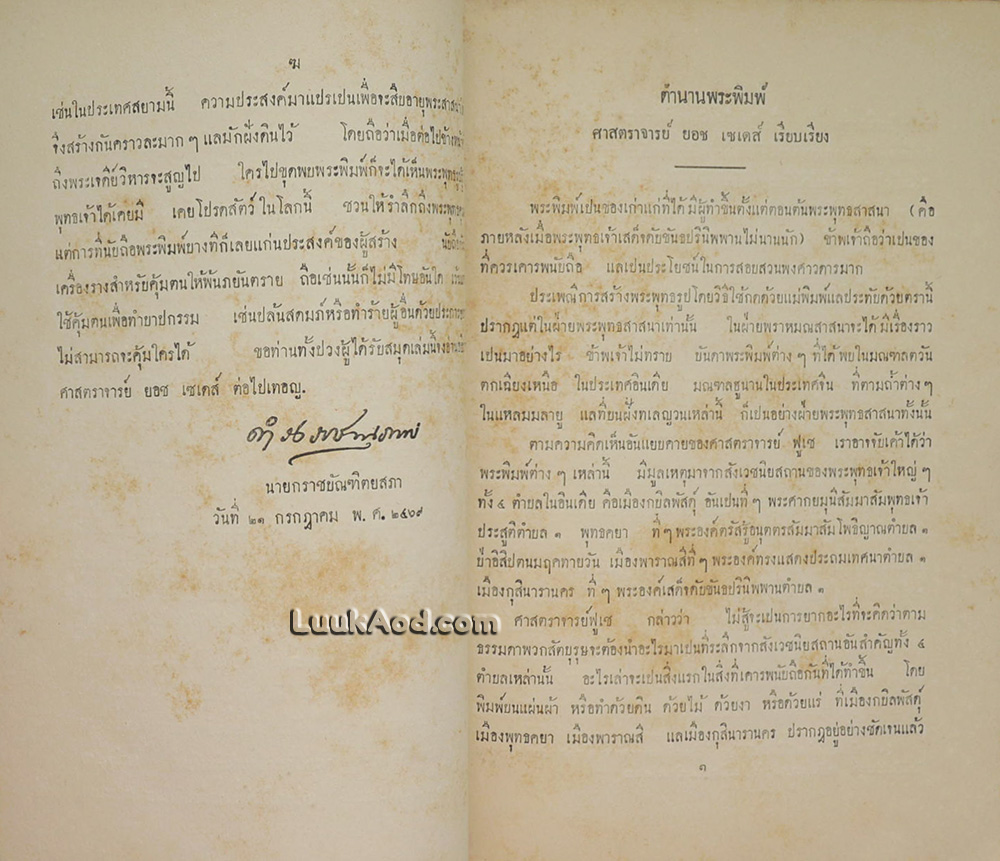 ฆ
เช่นในประเทศสยามนี้ ความประสงค์มาแปรเปนเพื่อจะสืบอายุพระสาสนา
จึงสร้างกันคราวละมาก ๆ แลมักฝังดินไว้ โดยถือว่าเมื่อต่อไปข้างหน้า
ถึงพระเจดีย์วิหารจะสูญไป ใครไปขุดพบพระพิมพ์ก็จะได้เห็นพระพุทธรูปรู้
พุทธเจ้าได้เคยมี เคยโปรดสัตว์ในโลกนี้ ชวนให้รำลึกถึงพระพุทธคุณ
แต่การที่นับถือพระพิมพ์บางทีก็เลยแก่นประสงค์ของผู้สร้าง นับถือเปน
เครื่องรางสำหรับคุ้มตนให้พ้นภยันตราย ถือเช่นนั้นก็ไม่มีโทษอันใด
ใช้คุ้มตนเพื่อทำบาปกรรม เช่นปล้นสดมภ์หรือทำร้ายผู้อื่นด้วยประการ
ไม่สามารถจะคุ้มใครได้ ขอท่านทั้งปวงผู้ได้รับสมุดเล่มนี้จง
ศาสตราจารย์ ยอช เซเดส์ ต่อไปเทอญ.
นายกราชบัณฑิตยสภา
วันที่ ๒๑ กรกฎาคม พ. ศ. ๒๔๖๙
ตำนานพระพิมพ์
ศาสตราจารย์ ยอช เซเดส์ เรียบเรียง
พระพิมพ์เป็นของเก่าแก่ที่ได้มีผู้ทำขึ้นตั้งแต่ตอนต้นพระพุทธสาสนา (คือ
ภายหลังเมื่อพระพุทธเจ้าเสด็จดับขันธปรินิพพานไม่นานนัก) ข้าพเจ้าถือว่าเป็นของ
ที่ควรเคารพนับถือ แลเป็นประโยชน์ในการสอบสวนพงศาวดารมาก
ประเพณีการสร้างพระพุทธรูปโดยวิธีใช้กดด้วยแม่พิมพ์แลประทับด้วยตรานี้
ปรากฏแต่ในฝ่ายพระพุทธสาสนาเท่านั้น ในฝ่ายพราหมณสาสนาจะได้มีเรื่องราว
เป็นมาอย่างไร ข้าพเจ้าไม่ทราบ บันดาพระพิมพ์ต่าง ๆ ที่ได้พบในมณฑลตวัน
ตกเฉียงเหนือ ในประเทศอินเดีย มณฑลฮูนานในประเทศจีน ที่ตามถ้ำต่าง ๆ
ในแหลมมลายู แลที่บนฝั่งทเลญวนเหล่านี้ ก็เป็นอย่างฝ่ายพระพุทธสาสนาทั้งนั้น
ตามความคิดเห็นอันแยบคายของศาสตราจารย์ ฟูเช เราอาจจับเค้าได้ว่า
พระพิมพ์ต่าง ๆ เหล่านี้ มีมูลเหตุมาจากสังเวชนิยสถานของพระพุทธเจ้าใหญ่ ๆ
ทั้ง ๔ ตำบลในอินเดีย คือเมืองกบิลพัสดุ์ อันเป็นที่ ๆ พระศากยมุนีสัมมาสัมพุทธเจ้า
ประสูติตำบล ๑ พุทธคยา ที่ ๆ พระองค์ตรัสรู้อนุตตรสัมมาสัมโพธิญาณตำบล ๑
ป่าอิสิปตนมฤคทายวัน เมืองพาราณสีที่ ๆ พระองค์ทรงแสดงประถมเทศนาตำบล ๑
เมืองกุสินารานคร ที่ ๆ พระองค์เสด็จดับขันธปรินิพพานตำบล ๑
LuukAod.com
ศาสตราจารย์ฟูเช กล่าวว่า ไม่สู้จะเป็นการยากอะไรที่จะคิดว่าตาม
ธรรมดาพวกสัตบุรุษจะต้องนำอะไรมาเป็นที่ระลึกจากสังเวชนิยสถานอันสำคัญทั้ง ๔
ตำบลเหล่านั้น อะไรเล่าจะเป็นสิ่งแรกในสิ่งที่เคารพนับถือกันที่ได้ทำขึ้น โดย
พิมพ์บนแผ่นผ้า หรือทำด้วยดิน ด้วยไม้ ด้วยงา หรือด้วยแร่ ที่เมืองกบิลพัสดุ์
เมืองพุทธคยา เมืองพาราณสี แลเมืองกุสินารานคร ปรากฏอยู่อย่างชัดเจนแล้ว
๑